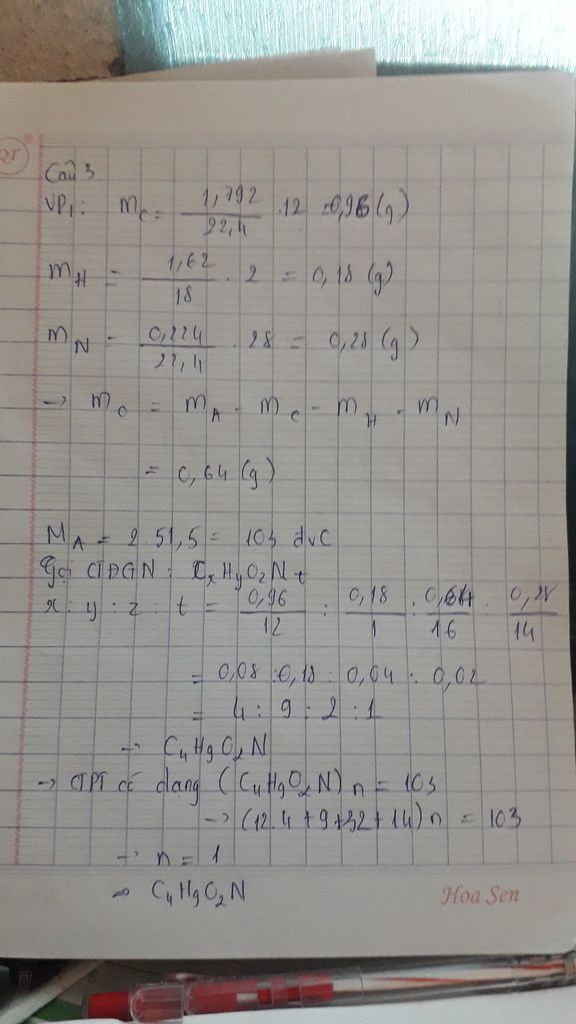 RT
Câu 3
VP1: mC = 1,792/22,4 .12 = 0,96 (g)
mH = 1,62/18 . 2 = 0,18 (g)
mN = 0,224/22,4 . 28 = 0,28 (g)
→ mO = mA - mC - mH - mN
= 0,64 (g)
MA = 2.51,5 = 103 đvC
Gọi CTĐGN: CxHyOzNt
x : y : z : t = 0,96/12 : 0,18/1 : 0,64/16 : 0,28/14
= 0,08 : 0,18 : 0,04 : 0,02
= 4 : 9 : 2 : 1
→ C4H9O2N
→ CTPT có dạng (C4H9O2N)n = 103
→ (12.4+9+32+14)n = 103
→ n = 1
⇒ C4H9O2N
Hoa Sen